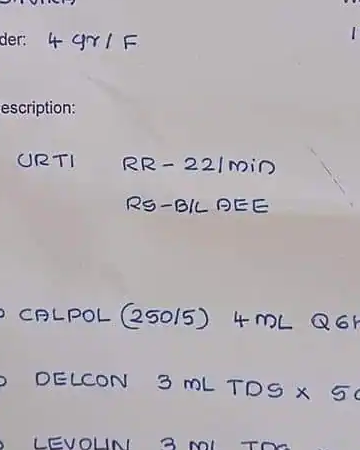 der: 4 yr / F
escription:
URTI RR - 22/min
RS - B/L AEE
CALPOL (250/5) 4 mL Q6H
DELCON 3 mL TDS x 5
LEVOLIN 3 ML TDS